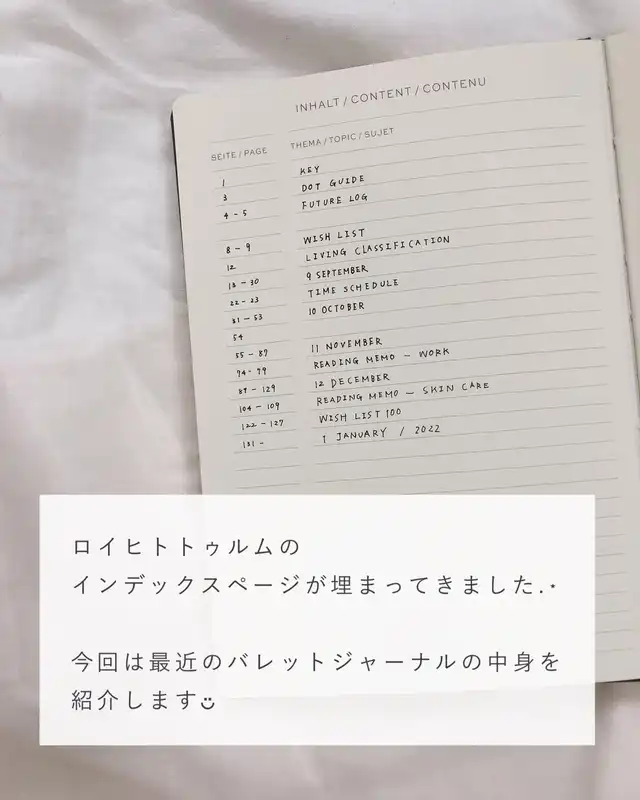 INHALT / CONTENT / CONTENU
SEITE / PAGE THEMA / TOPIC / SUJET
1 KEY
3 DOT GUIDE
4 - 5 FUTURE LOG
8 - 9 WISH LIST
12 LIVING CLASSIFICATION
13 - 30 9 SEPTEMBER
22 - 23 TIME SCHEDULE
31 - 53 10 OCTOBER
54
55 - 87 11 NOVEMBER
74 - 79 READING MEMO - WORK
89 - 129 12 DECEMBER
104 - 109 READING MEMO - SKIN CARE
122 - 127 WISH LIST 100
131 - 1 JANUARY / 2022
ロイヒトトゥルムの
インデックスページが埋まってきました.⋆
今回は最近のバレットジャーナルの中身を
紹介します